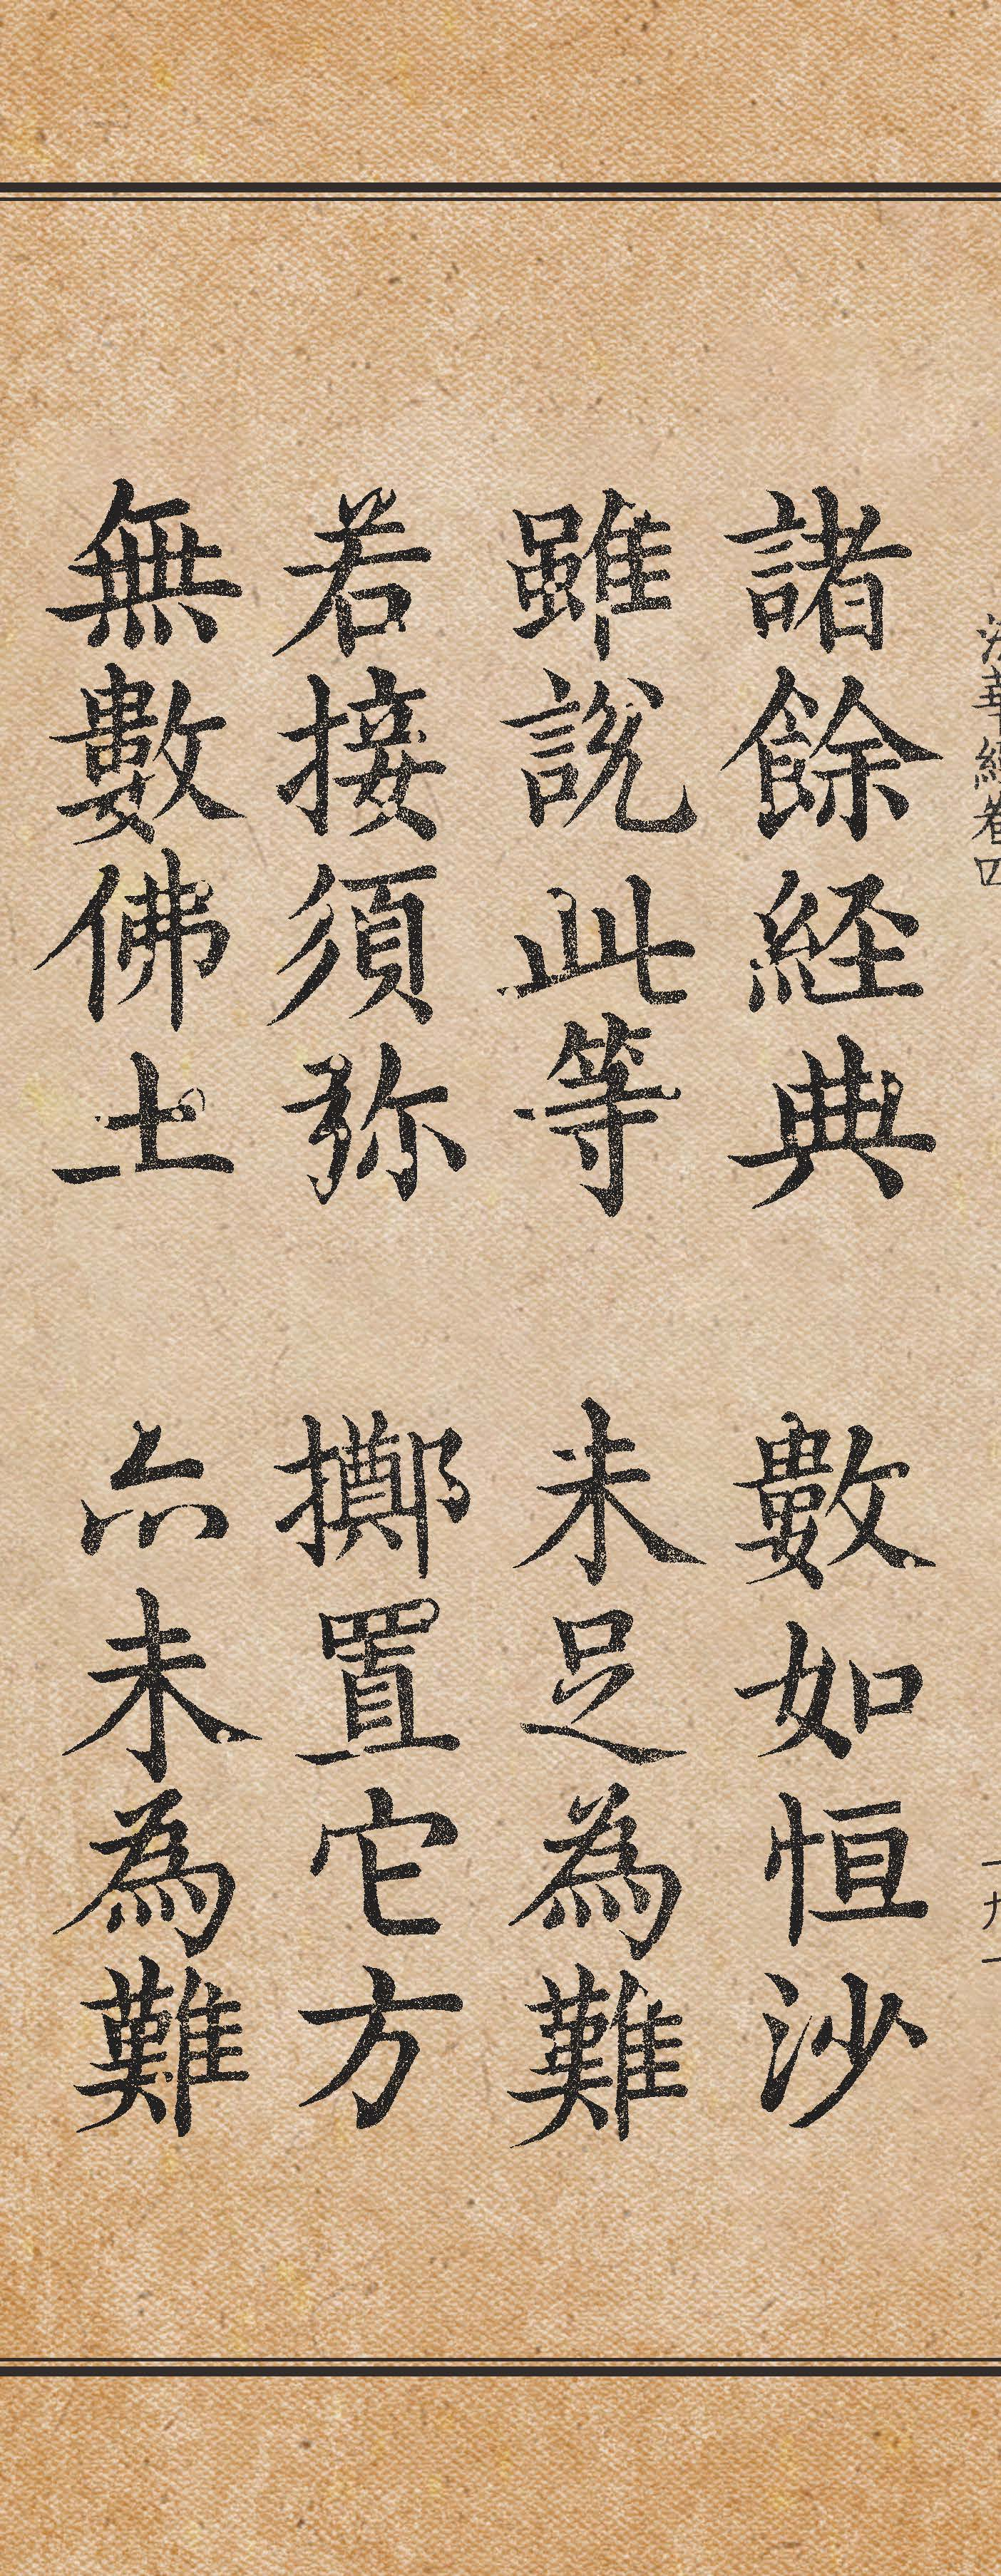 法華經卷四
諸餘経典 數如恒沙
雖說此等 未足為難
若接須弥 擲置它方
無數佛土 亦未為難